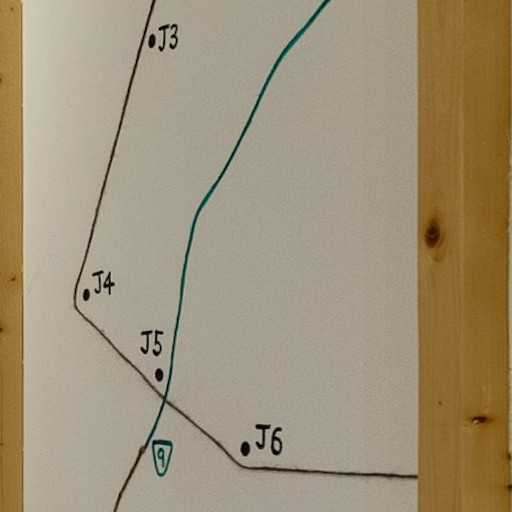 J3
J4
J5
J6
9